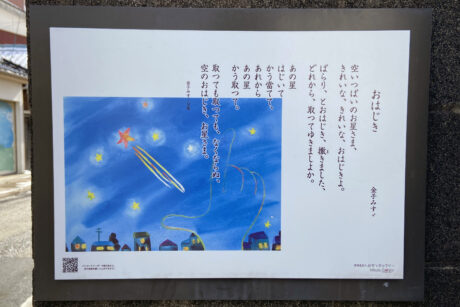 おはじき
金子みすゞ
空いつぱいのお星さま、
きれいな、きれいな、おはじきよ。
ぱらり、とおはじき、撒きました、
どれから、取つてゆきましよか。
あの星
はじいて
かう當てて、
あれから
あの星
かう取つて。
取つても取つても、なくならぬ、
空のおはじき、お星さま。